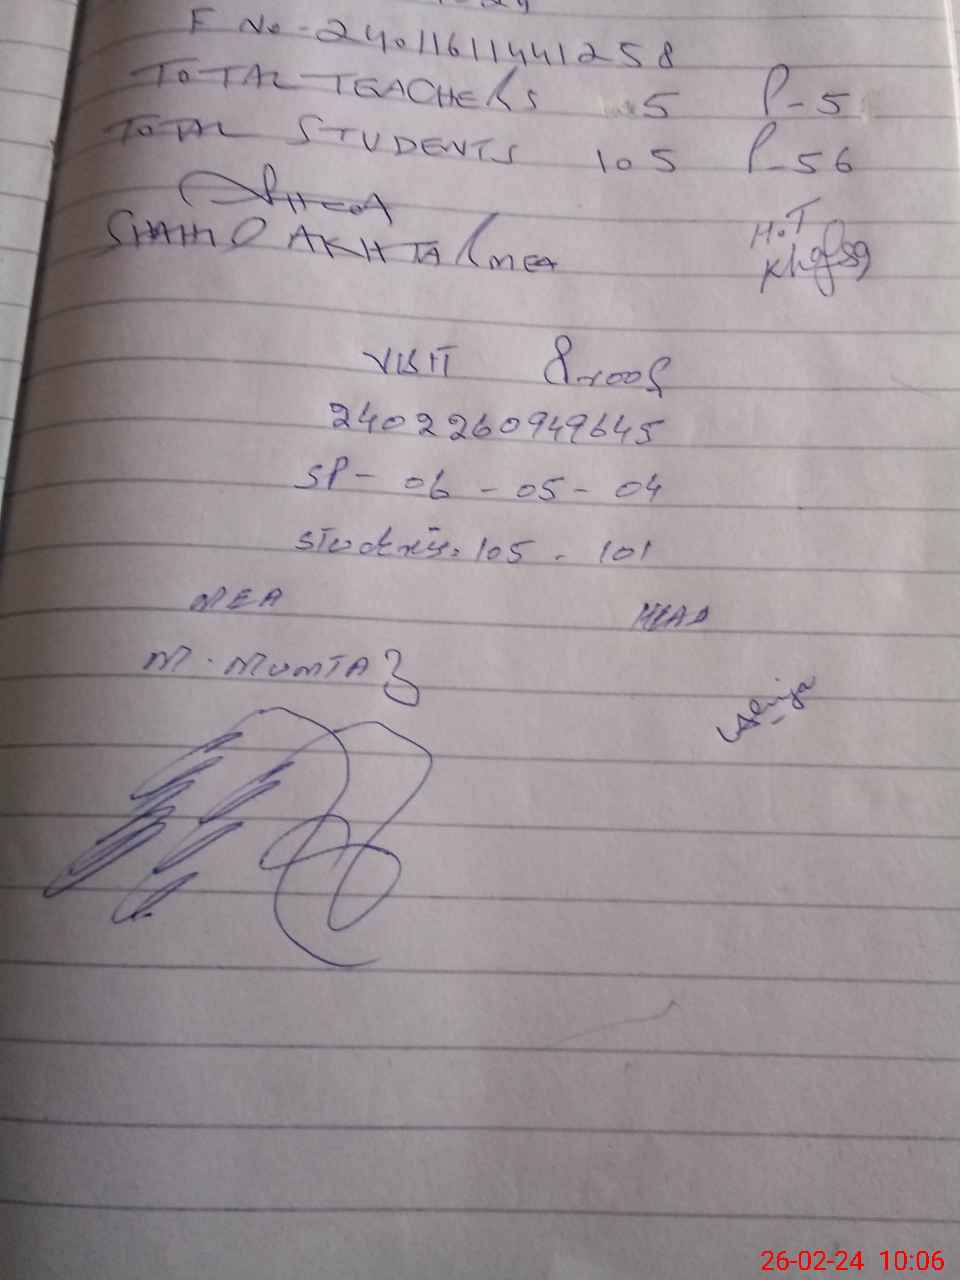 F No - 24011611441258
TOTAL TEACHERS 5 P-5
TOTAL STUDENTS 105 P-56
SHAHID AKHTAR MEA H.T
VISIT Proof
2402260949645
SP - 06 - 05 - 04
Students. 105 - 101
MEA HEAD
M. MUMTAZ
26-02-24 10:06